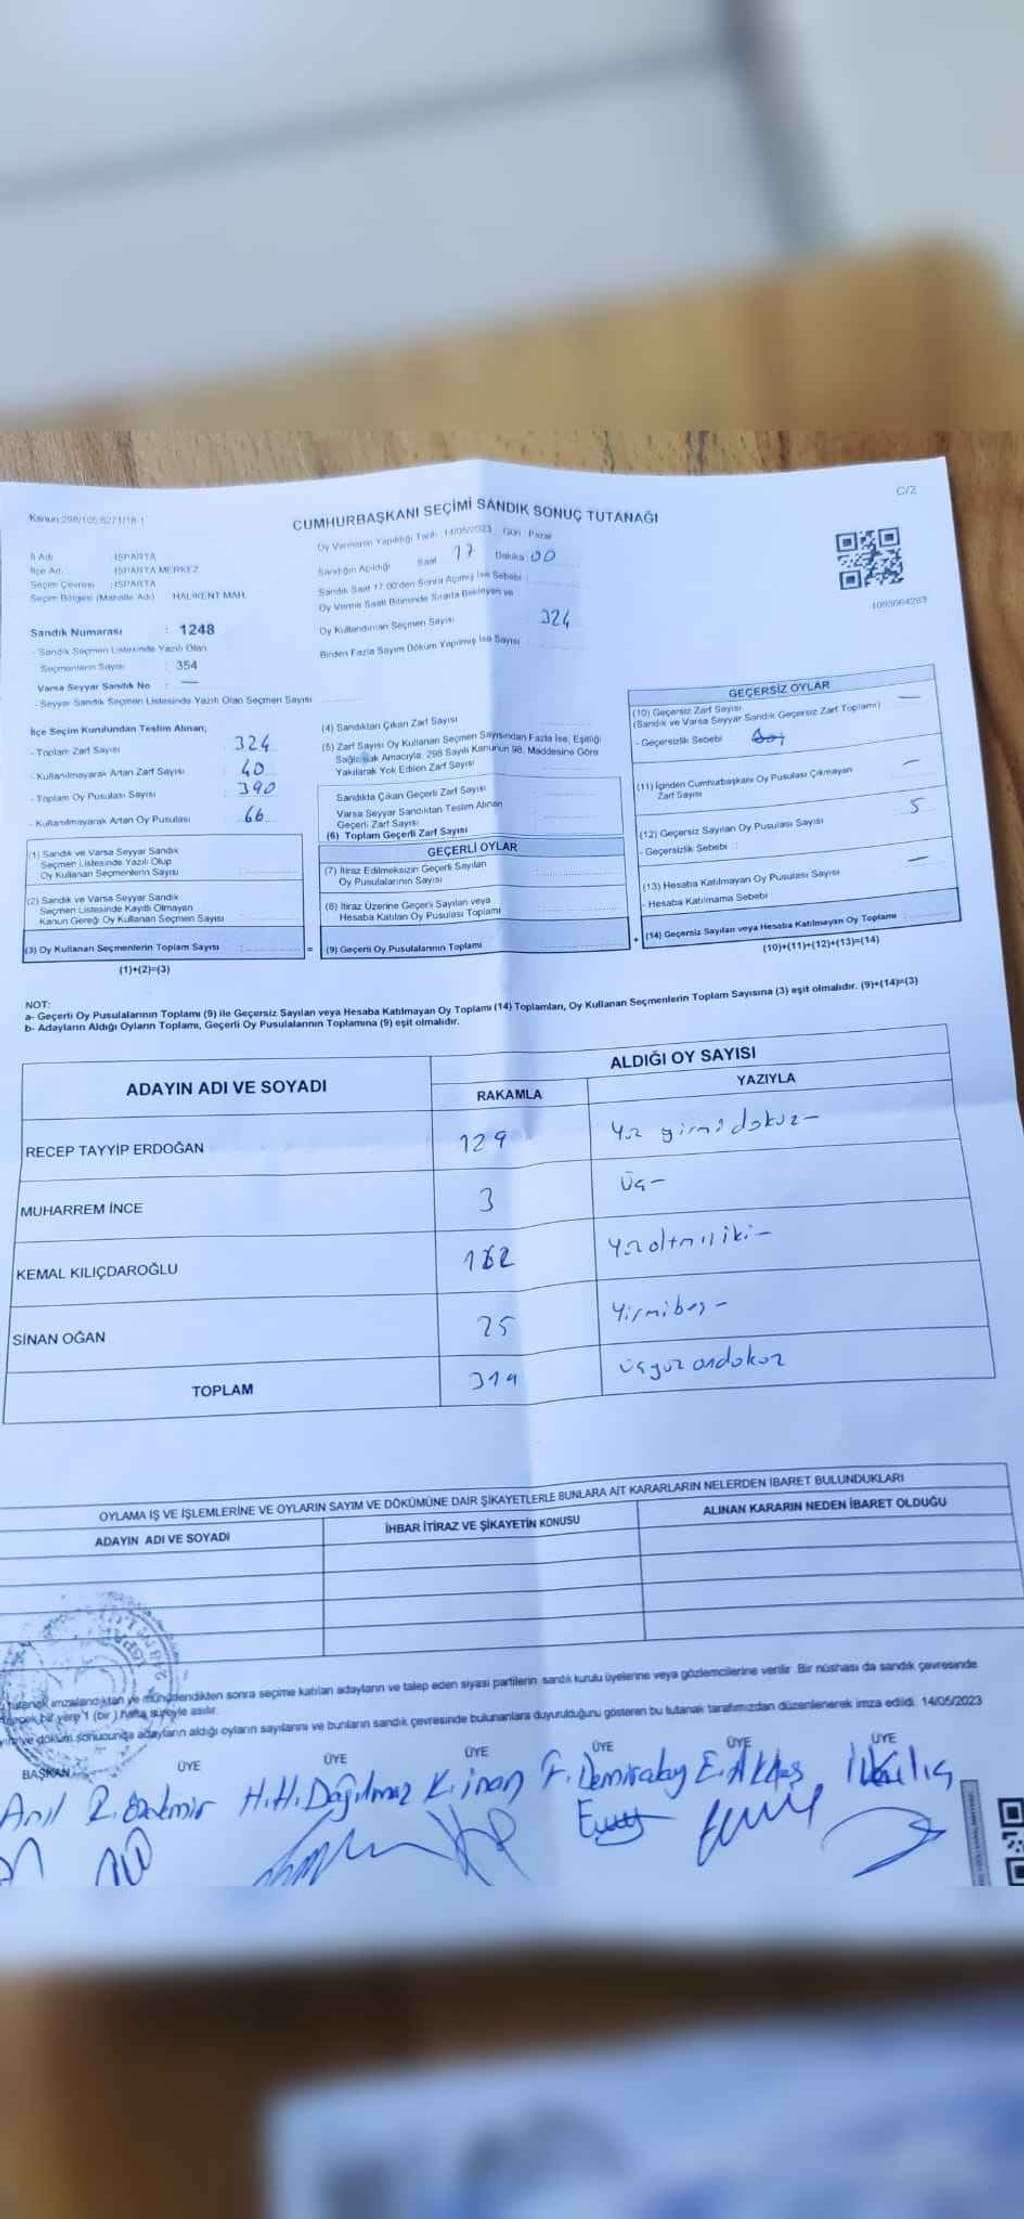 C/Z
Kanun:298/105,6271/18-1
CUMHURBAŞKANI SEÇİMİ SANDIK SONUÇ TUTANAĞI
İl Adı : ISPARTA
İlçe Adı : ISPARTA MERKEZ
Seçim Çevresi : ISPARTA
Seçim Bölgesi (Mahalle Adı) HALIKENT MAH.
Sandık Numarası : 1248
- Sandık Seçmen Listesinde Yazılı Olan
Seçmenlerin Sayısı : 354
Varsa Seyyar Sandık No : —
- Seyyar Sandık Seçmen Listesinde Yazılı Olan Seçmen Sayısı
Oy Vermenin Yapıldığı Tarih 14/05/2023 Gün Pazar
Sandığın Açıldığı Saat 17 Dakika 00
Sandık Saat 17:00'den Sonra Açılmış İse Sebebi :
Oy Verme Saati Bitiminde Sırada Bekleyen ve
Oy Kullandırılan Seçmen Sayısı 324
Birden Fazla Sayım Döküm Yapılmış İse Sayısı
1093664283
İlçe Seçim Kurulundan Teslim Alınan;
- Toplam Zarf Sayısı : 324
- Kullanılmayarak Artan Zarf Sayısı : 40
- Toplam Oy Pusulası Sayısı : 390
- Kullanılmayarak Artan Oy Pusulası : 66
(1) Sandık ve Varsa Seyyar Sandık
Seçmen Listesinde Yazılı Olup
Oy Kullanan Seçmenlerin Sayısı
(2) Sandık ve Varsa Seyyar Sandık
Seçmen Listesinde Kayıtlı Olmayan
Kanun Gereği Oy Kullanan Seçmen Sayısı
(3) Oy Kullanan Seçmenlerin Toplam Sayısı
(1)+(2)=(3)
(4) Sandıktan Çıkan Zarf Sayısı
(5) Zarf Sayısı Oy Kullanan Seçmen Sayısından Fazla İse, Eşitliği
Sağlamak Amacıyla, 298 Sayılı Kanunun 98. Maddesine Göre
Yakılarak Yok Edilen Zarf Sayısı
Sandıkta Çıkan Geçerli Zarf Sayısı
Varsa Seyyar Sandıktan Teslim Alınan
Geçerli Zarf Sayısı
(6) Toplam Geçerli Zarf Sayısı
GEÇERLİ OYLAR
(7) İtiraz Edilmeksizin Geçerli Sayılan
Oy Pusulalarının Sayısı
(8) İtiraz Üzerine Geçerli Sayılan veya
Hesaba Katılan Oy Pusulası Toplamı
= (9) Geçerli Oy Pusulalarının Toplamı
GEÇERSİZ OYLAR
(10) Geçersiz Zarf Sayısı —
(Sandık ve Varsa Seyyar Sandık Geçersiz Zarf Toplamı)
- Geçersizlik Sebebi
(11) İçinden Cumhurbaşkanı Oy Pusulası Çıkmayan —
Zarf Sayısı
(12) Geçersiz Sayılan Oy Pusulası Sayısı 5
- Geçersizlik Sebebi :
(13) Hesaba Katılmayan Oy Pusulası Sayısı —
- Hesaba Katılmama Sebebi
+ (14) Geçersiz Sayılan veya Hesaba Katılmayan Oy Toplamı
(10)+(11)+(12)+(13)=(14)
NOT:
a- Geçerli Oy Pusulalarının Toplamı (9) ile Geçersiz Sayılan veya Hesaba Katılmayan Oy Toplamı (14) Toplamları, Oy Kullanan Seçmenlerin Toplam Sayısına (3) eşit olmalıdır. (9)+(14)=(3)
b- Adayların Aldığı Oyların Toplamı, Geçerli Oy Pusulalarının Toplamına (9) eşit olmalıdır.
ADAYIN ADI VE SOYADI ALDIĞI OY SAYISI
RAKAMLA YAZIYLA
RECEP TAYYİP ERDOĞAN 129 Yüz yirmi dokuz-
MUHARREM İNCE 3 Üç-
KEMAL KILIÇDAROĞLU 162 Yüzaltmışiki-
SİNAN OĞAN 25 Yirmibeş-
TOPLAM 319 üçyüz ondokuz
OYLAMA İŞ VE İŞLEMLERİNE VE OYLARIN SAYIM VE DÖKÜMÜNE DAİR ŞİKAYETLERLE BUNLARA AİT KARARLARIN NELERDEN İBARET BULUNDUKLARI
ADAYIN ADI VE SOYADI İHBAR İTİRAZ VE ŞİKAYETİN KONUSU ALINAN KARARIN NEDEN İBARET OLDUĞU
tutanak imzalandıktan ve mühürlendikten sonra seçime katılan adayların ve talep eden siyasi partilerin sandık kurulu üyelerine veya gözlemcilerine verilir. Bir nüshası da sandık çevresinde
bir yere 1 (bir) hafta süreyle asılır.
ve döküm sonucunda adayların aldığı oyların sayılarını ve bunların sandık çevresinde bulunanlara duyurulduğunu gösteren bu tutanak tarafımızdan düzenlenerek imza edildi. 14/05/2023
BAŞKAN ÜYE ÜYE ÜYE ÜYE ÜYE ÜYE
Anıl R. Özdemir H.H. Dağılmaz K. inan F. Demiralay E. Aktaş İ. Kılıç